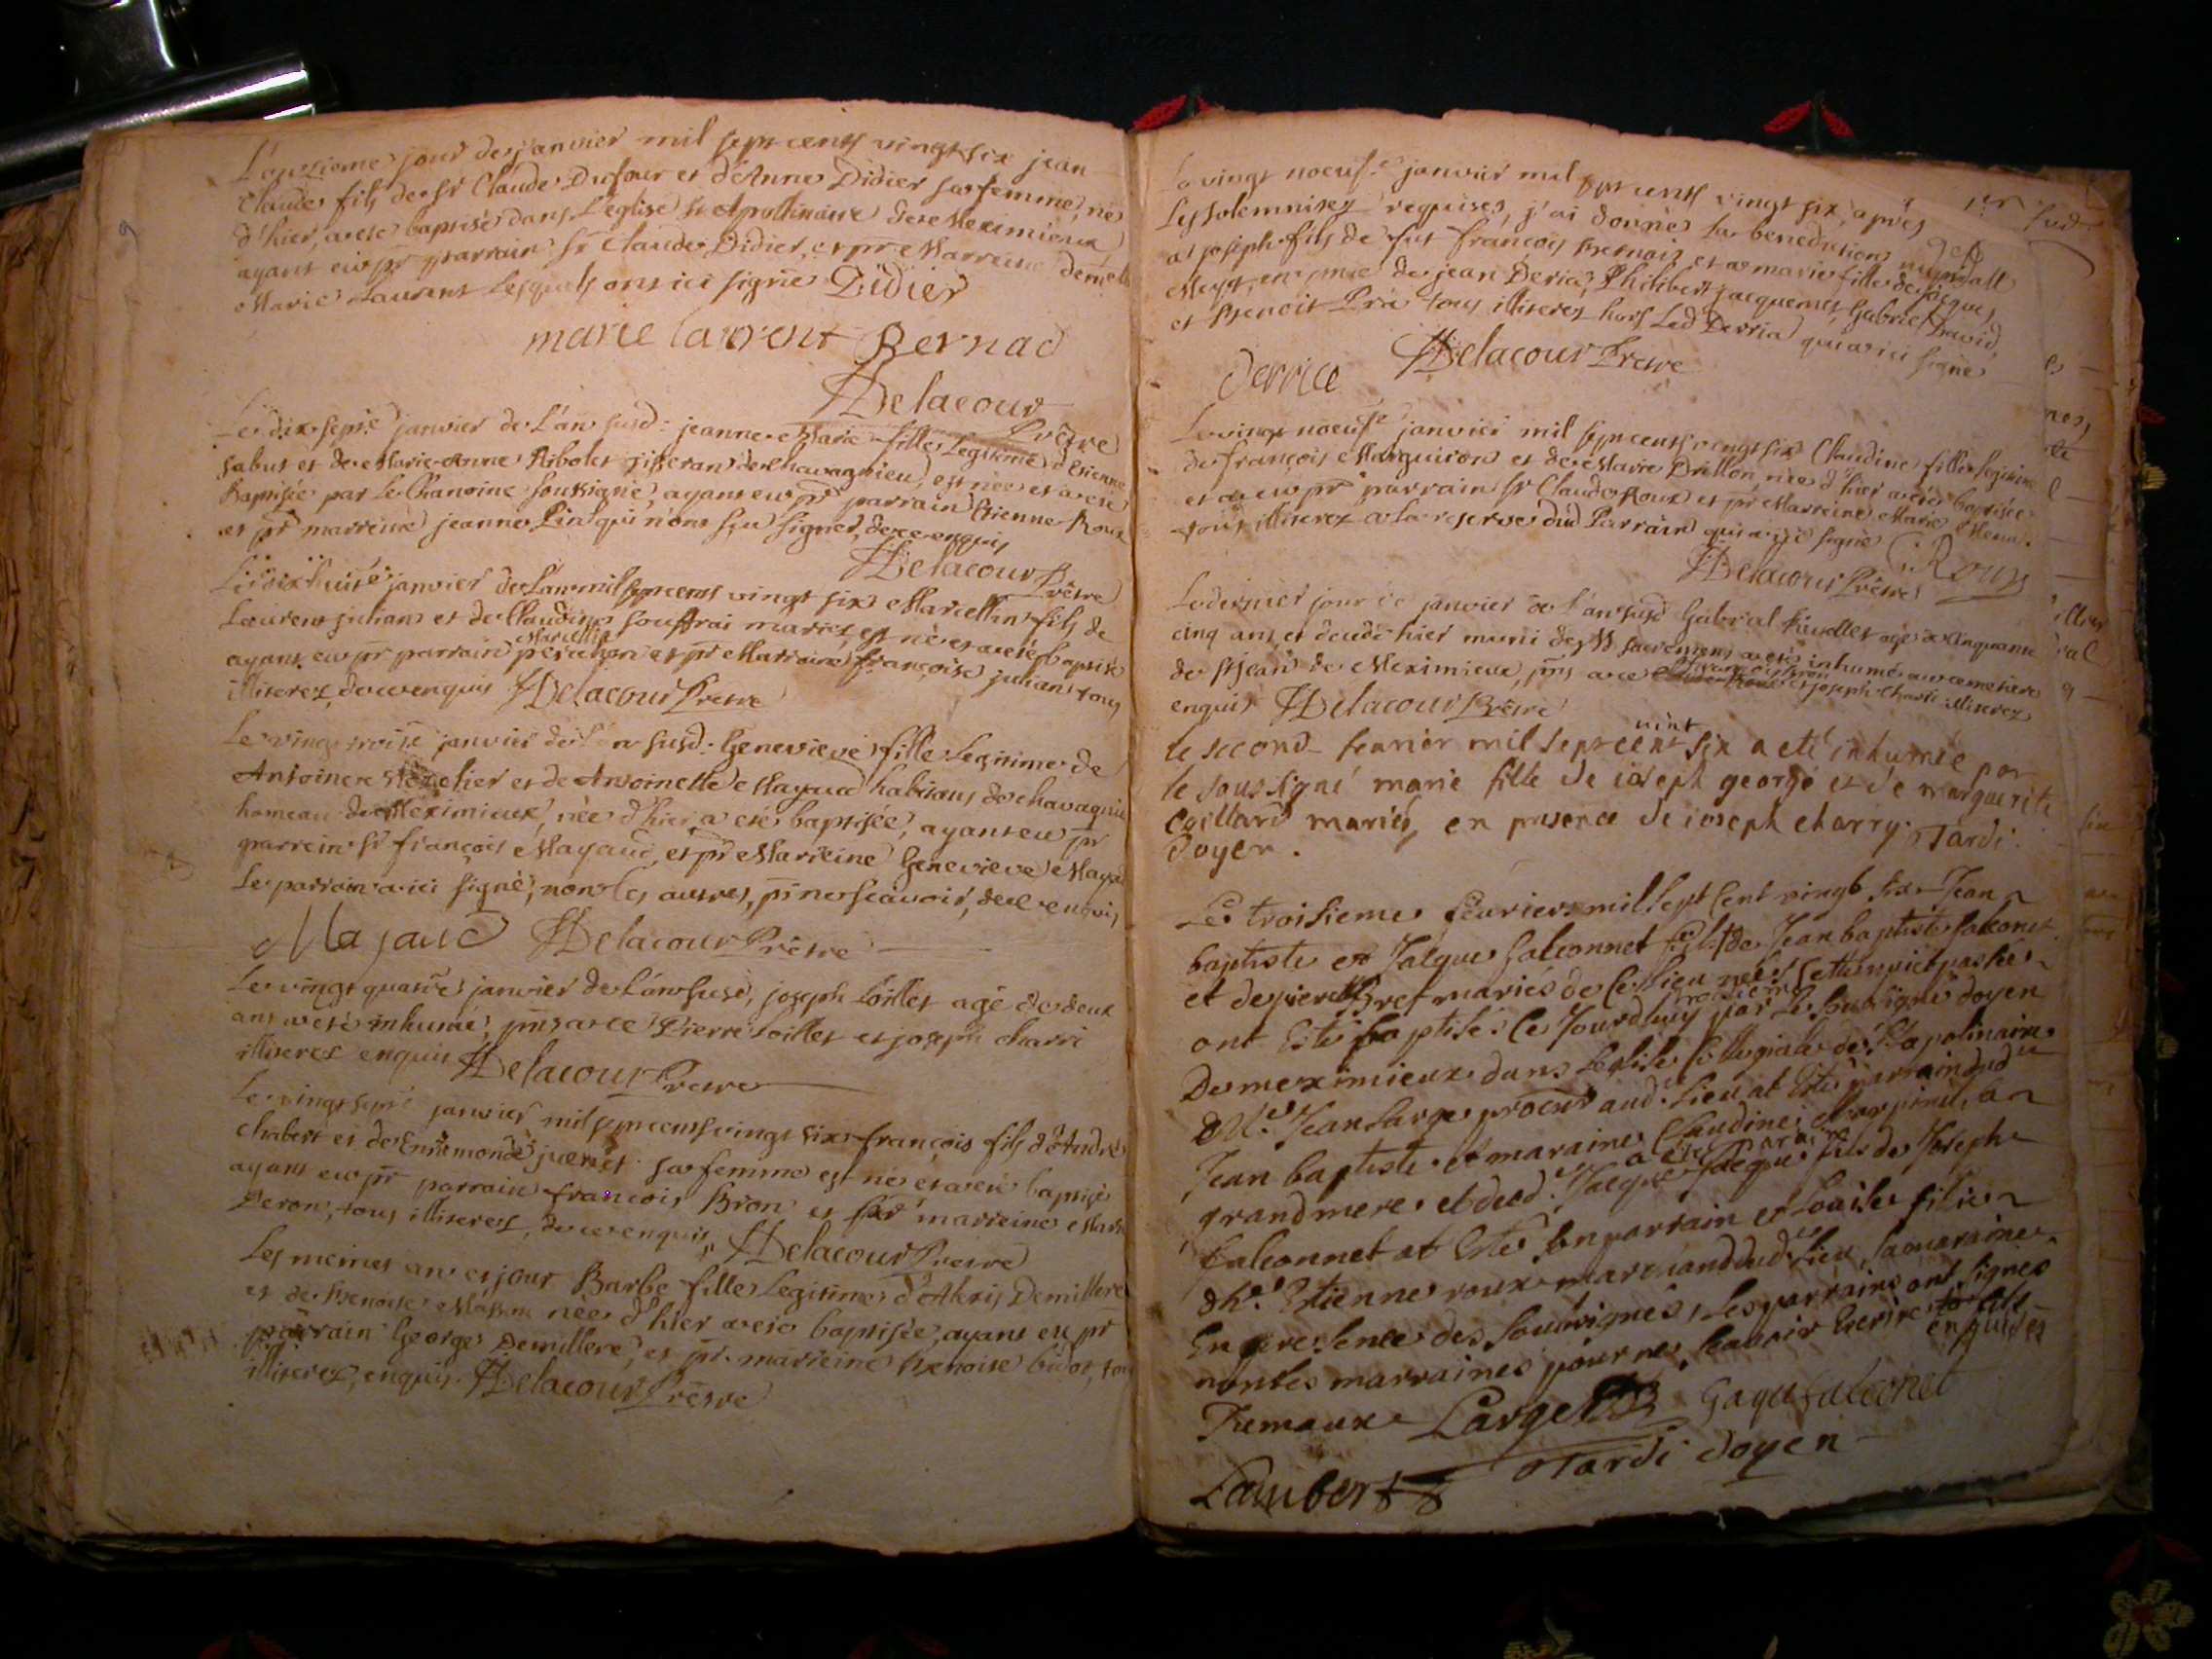 L'onzieme jour de janvier mil sept cents vingt six jean
Claude fils de Sr Claude Dufour et d'Anne Didier sa femme, né
d'hier, a eté baptisé dans L'eglise St Apollinaire de Meximieux
ayant eu pr parrain Sr Claude Didier, et pr Marreine demelle
Marie Laurent Lesquels ont ici signé Didier
marie laurent Bernad
Delacour
Prêtre
Le dix sept.e janvier de L'an susd: jeanne Marie fille Legitime d'Etienne
Sabut et de Marie-Anne Ribolet de Chavagnieu, est née et a eté
Baptisée par Le Chanoine soussigné, ayant eu pr parrain Etienne Roux
et pr marreine jeanne Pin qui n'ont sçu signer, de ce enquis
Delacour Prêtre
Le dix huit.e janvier de L'an mil sept cents vingt six Marcellin fils de
Laurent julian et de Claudine Souffrai mariez, est né et a eté baptisé
Marcellin
ayant eu pr parrain et pr Marraine françoise julian tous
illiterez, de ce enquis Delacour Prêtre
Le vingt trois.e janvier de L'an susd: Genevieve fille Legitime de
Antoine et de Antoinette Mayaud habitans de chavagnieu
hameau de Meximieux, née d'hier a eté baptisée, ayant eu pr
parrein Sr françois Mayaud, et pr Marreine Genevieve Mayaud
Le parrain a ici signé, non les autres, pr ne sçavoir, de ce enquis
Majaud Delacour Prêtre
Le vingt quatr.e janvier de L'an susd, joseph Loillet agé de deux
ans a eté inhumé, pnts a ce Pierre Loillet et joseph charri
illiterez enquis Delacour Prêtre
Le vingt sept.e janvier mil sept cents vingt six françois fils d'André
chabert et de Ennemonde sa femme est né et a eté baptisé
ayant eu pr parrain françois Bron et pr marreine Marie
Peron, tous illiterez, de ce enquis, Delacour Prêtre
Les memes an et jour Barbe fille Legitime d'Alexis Demillere
et de Benoite née d'hier a eté baptisée, ayant eu pr
parrain George Demillere, et pr marreine Benoise bidot, tous
illiterez, enquis. Delacour Prêtre
Le vingt noeuf.e janvier mil sept cents vingt six, après
Les solemnitez requises, j'ai donné La benediction nuptiale
a joseph fils de fut françois Bernaiz et a marie fille de jacque
en pnce de jean Deria, Philibert jacquemet, Gabriel David,
et Benoit Pra tous illiterez hors Led Derria qui a ici signé
derria Delacour Prêtre
Le vingt noeuf.e janvier mil sept cents vingt six Claudine fille Legitime
de françois Marguiron et de Marie Drillon, née d'hier a eté baptisée
et a eu pr parrain Sr Claude Roux et pr Marreine Marie
tous illiterez a La reserve dud Parrain qui a ici signé C. Roux
Delacour Prêtre
Le dernier jour de janvier de L'an susd Gabriel agé de cinquante
cinq ans et decedé hier muni des SS. sacremens a eté inhumé au cemetiere
de St jean de Meximieux, pnts a ce et joseph charri illiterez
enquis Delacour Prêtre
vint
le second feurier mil sept cent six a eté inhumée par
le soussigné marie fille de ioseph george et de marguerite
Coillard mariés, en presence de ioseph charry. Tardi
doyen.
Le troisieme feurier mil sept Cent vingt six Jean
baptiste et Jacque falconnet fils de Jean baptiste falconet
et de pierrette Bret mariés de Ce Lieu nés Cette nuict passée
ont Esté baptisé Ce Jourdhuy troisieme par Le soussigné doyen
De meximieux dans Leglise Collegiale de St apolinaire
Me. Jean Large procur aud. Lieu at Esté parrain dud
Jean baptiste et maraine Claudine sa
a eté parain
grand mere et dud. Jacque Jacque fils de Joseph
falconnet at Esté son parrain et Louise fille
dhe. Estienne roux marchand dud Lieu sa maraine
En presence des soussignés, Les parrains ont signés
non les marraines pour ne sçavoir Escrire
enquises
Tremaux Large Gaque falconet
Lambert Tardi doyen